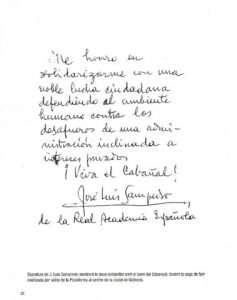 Me honro en
solidarizarme con una
noble lucha ciudadana
defendiendo el ambiente
humano contra los
desafueros de una admi-
nistración inclinada a
intereses privados
¡Viva el Cabañal!
José Luis Sampedro
de la Real Academia Española
Signatura de J. Luis Sampedro mostrant la seua solidaritat amb el barri del Cabanyal, durant la vaga de fam
realitzada per veïns de la Plataforma al centre de la ciutat de València.